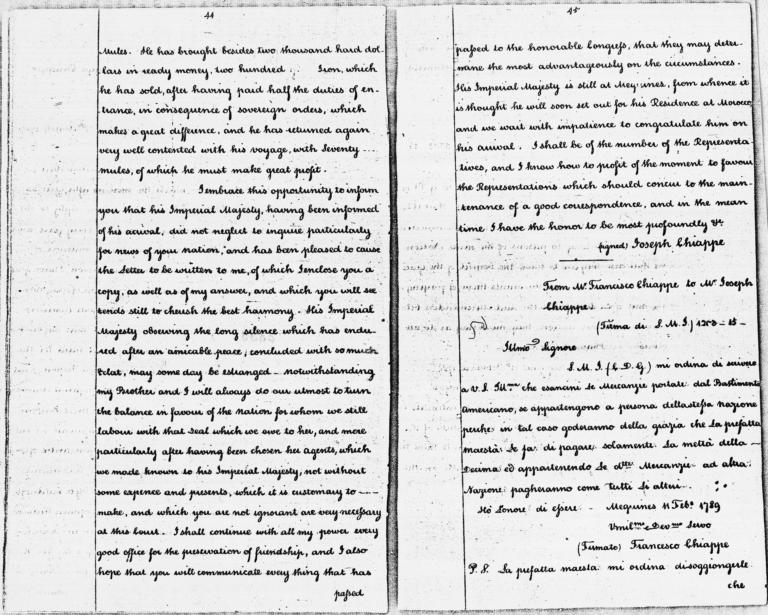 44
Mules. He has brought besides two thousand hard dol-
lars in ready money, two hundred Iron, which
he has sold, after having paid half the duties of en-
trance, in consequence of sovereign orders, which
makes a great difference, and he has returned again
very well contented with his voyage, with Seventy
mules, of which he must make great profit.
I embrace this opportunity to inform
you that his Imperial Majesty, having been informed
of his arrival, did not neglect to inquire particularly
for news of your nation, and has been pleased to cause
the Letter to be written to me, of which I enclose you a
copy, as well as of my answer, and which you will see
tends still to cherish the best harmony. His Imperial
Majesty observing the long silence which has endu-
red after an amicable peace, concluded with so much
Eclat, may some day be estranged - notwithstanding
my Brother and I will always do our utmost to turn
the balance in favour of the nation for whom we still
labour with that zeal which we owe to her, and more
particularly after having been chosen her agents, which
we made known to his Imperial Majesty, not without
some expence and presents, which it is customary to
make, and which you are not ignorant are very necessary
at this Court. I shall continue with all my power every
good office for the preservation of friendship, and I also
hope that you will communicate every thing that has
passed
45
passed to the honorable Congress, that they may deter-
mine the most advantageously on the circumstances.
His Imperial Majesty is still at Mequines, from whence it
is thought he will soon set out for his Residence at Morocco,
and we wait with impatience to congratulate him on
his arrival. I shall be of the number of the Representa-
tives, and I know how to profit of the moment to favour
the Representations which should concur to the main-
tenance of a good correspondence, and in the mean
time I have the honor to be most profoundly &c
signed, Joseph Chiappe
From Mr. Francesco Chiappe to Mr. Joseph
Chiappe
(Firma di S. M. I.) 1203 - 15 -
Illmo. Signore
S. M. I. (C. D. G.) mi ordina di scrivere
a V. S. Illma. che esamini Le Mercanzie portate dal Bastimento
Americano, se appartengono a persona dellastessa nazione
perche in tal caso goderanno della grazia che La prefatta
maestà Le fa di pagare solamente La metià della
Decima ed appartenendo Le dtte. Mercanzie ad altra
Nazione pagheranno come tutti Li altri
Ho Lonore di essere - Mequines 11 Febo. 1789
Vmilmo. e Devmo. Servo
(Firmato) Francesco Chiappe
P. S. La prefatta maesta mi ordina disoggiongerle
che